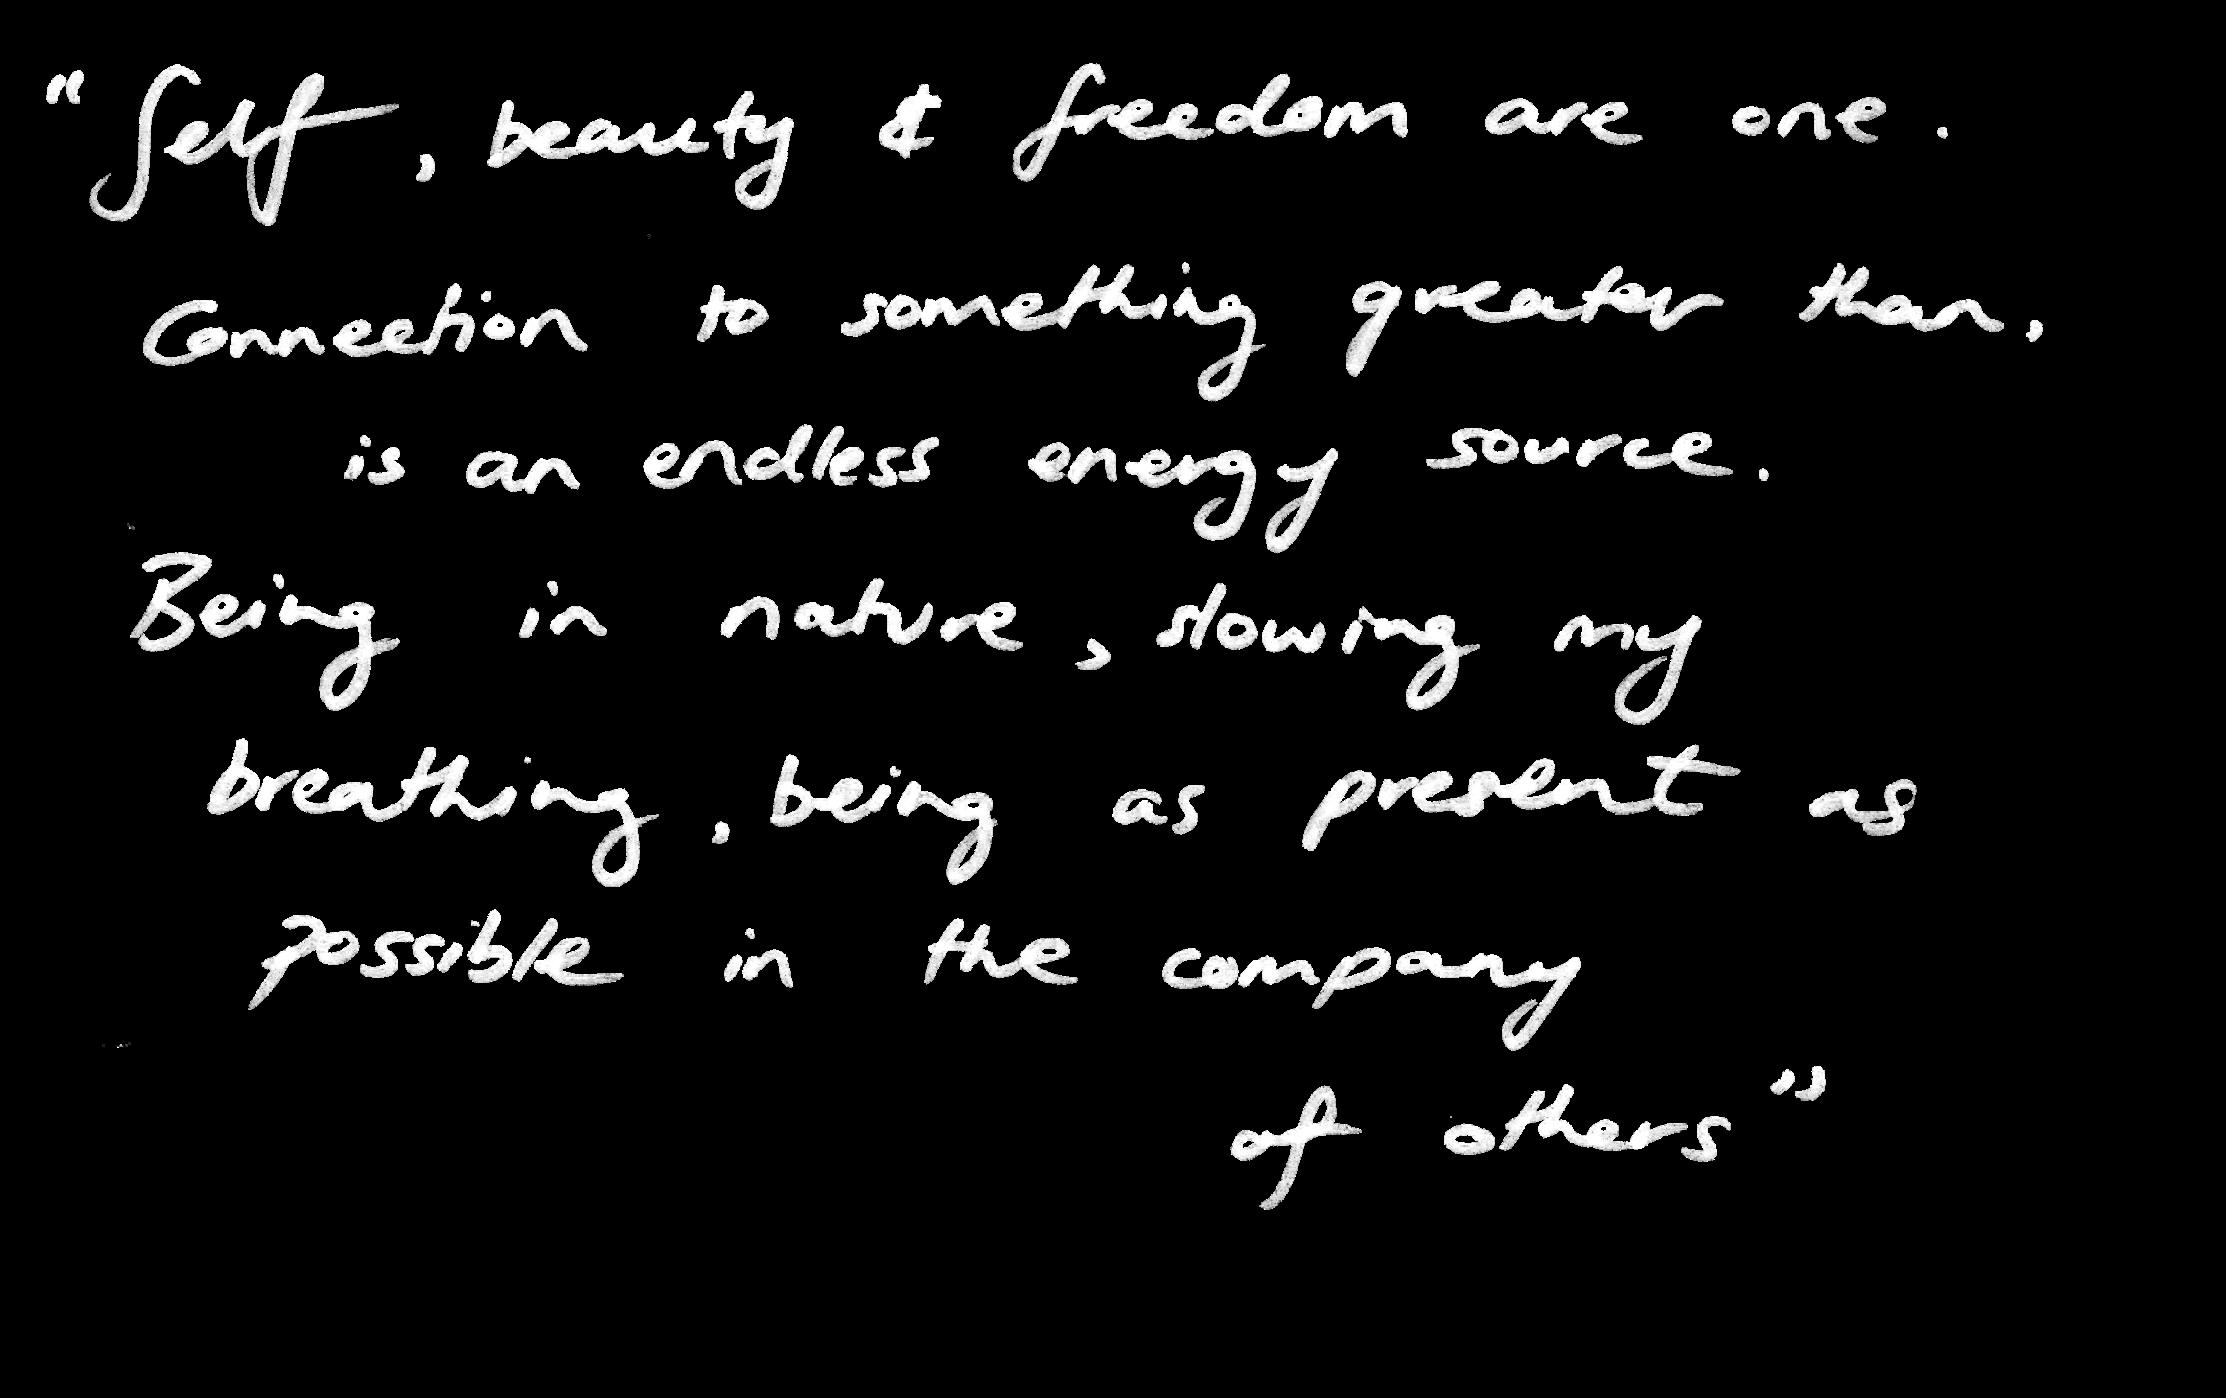 "Self, beauty & freedom are one.
Connection to something greater than,
is an endless energy source.
Being in nature, slowing my
breathing, being as present as
possible in the company
of others"